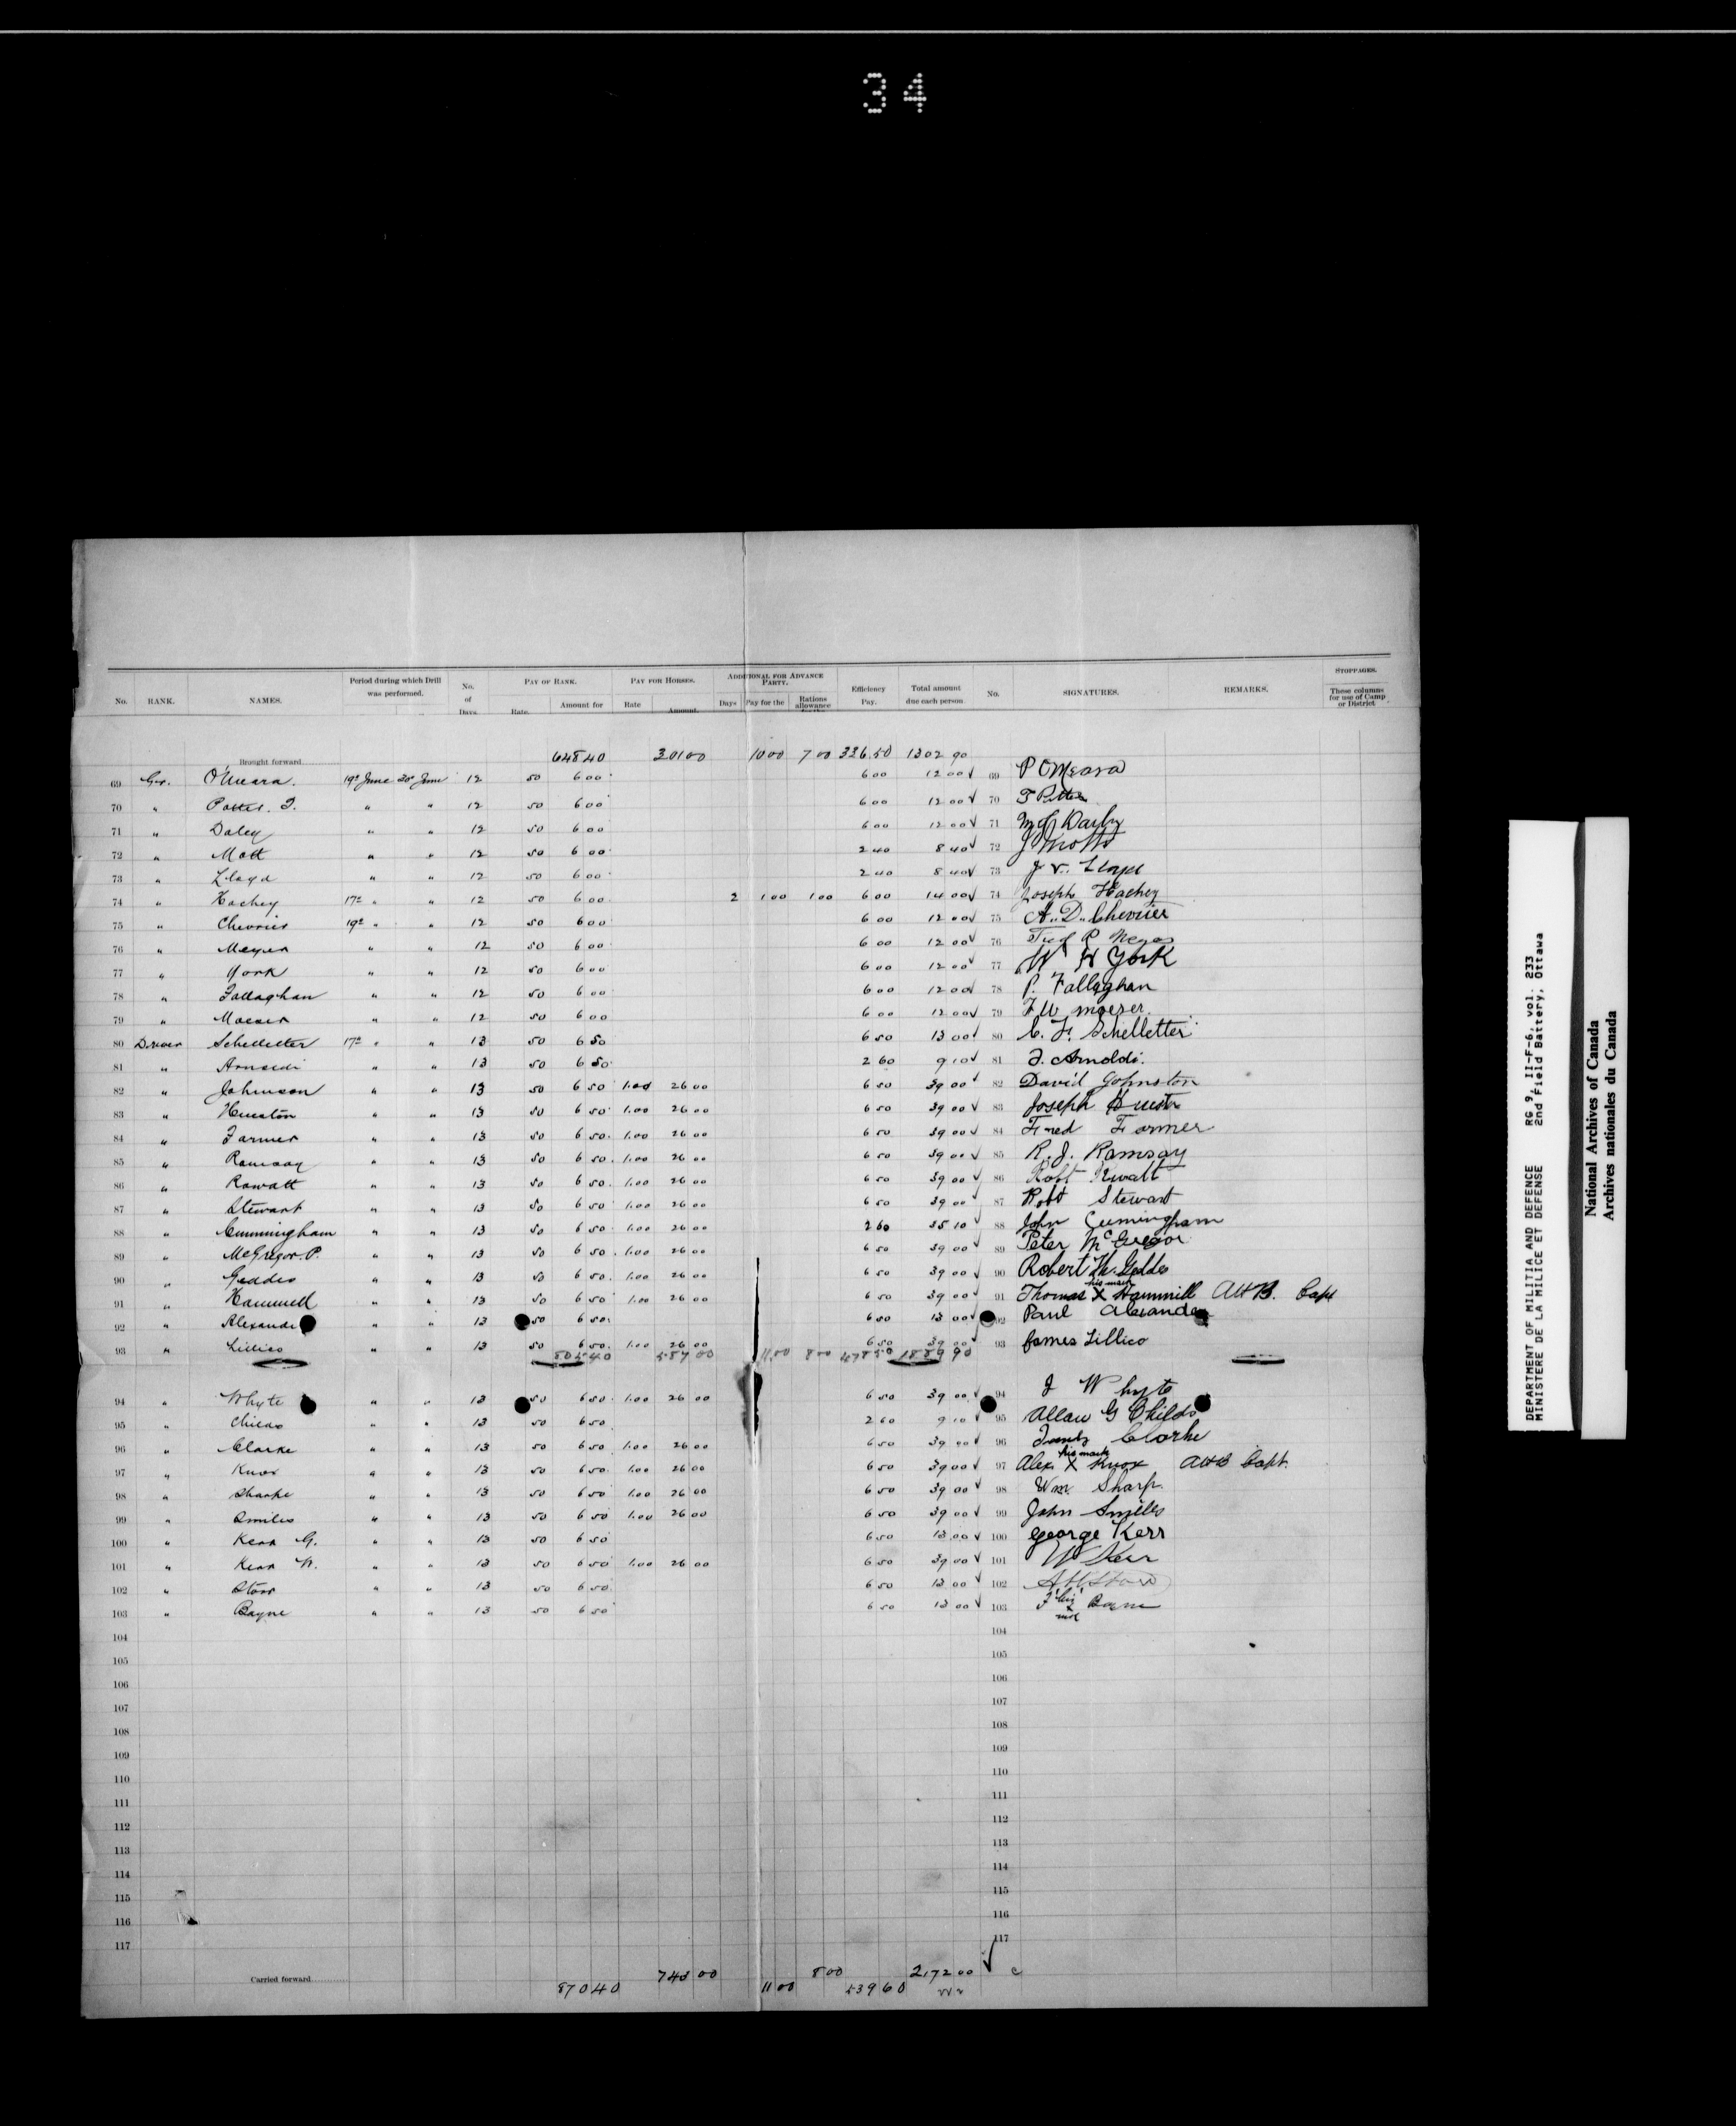 34
No. RANK. NAMES. Period during which Drill was performed. No. of Days. PAY OF RANK. Rate. Amount for PAY FOR HORSES. Rate Amount. ADDITIONAL FOR ADVANCE PARTY. Days Pay for the Rations allowance for the Efficiency Pay. Total amount due each person. No. SIGNATURES. REMARKS. STOPPAGES. These columns for use of Camp or District
Brought forward 648 40 301 00 10 00 7 00 336.50 1302 90
69 Gr. O'Meara. 19th June 30th June 12 50 6 00 6 00 12 00 ✓ 69 P O'Meara
70 " Potter. T. " " 12 50 6 00 6 00 12 00 ✓ 70 T Potter
71 " Daley " " 12 50 6 00 6 00 12 00 ✓ 71
72 " Mott " " 12 50 6 00 2 40 8 40 ✓ 72 J Mott
73 " Lloyd " " 12 50 6 00 2 40 8 40 ✓ 73 J v. Lloyd
74 " Hachey 17th " " 12 50 6 00 2 1 00 1 00 6 00 14 00 ✓ 74 Joseph Hachey
75 " Chevrier 19th " " 12 50 6 00 6 00 12 00 ✓ 75 A. D. Chevrier
76 " Meyer " " 12 50 6 00 6 00 12 00 ✓ 76 Fred R
77 " York " " 12 50 6 00 6 00 12 00 ✓ 77 W H York
78 " Fallaghan " " 12 50 6 00 6 00 12 00 ✓ 78 P. Fallaghan
79 " Moeser " " 12 50 6 00 6 00 12 00 ✓ 79 F W moeser.
80 Driver Schelletter 17th " " 13 50 6 50 6 50 13 00 ✓ 80 C. F. Schelletter
81 " " " 13 50 6 50 2 60 9 10 ✓ 81 J. Arnoldi.
82 " Johnson " " 13 50 6 50 1.00 26 00 6 50 39 00 ✓ 82 David Johnston
83 " Hueston " " 13 50 6 50 1.00 26 00 6 50 39 00 ✓ 83 Joseph
84 " Farmer " " 13 50 6 50 1.00 26 00 6 50 39 00 ✓ 84 Fred Farmer
85 " Ramsay " " 13 50 6 50 1.00 26 00 6 50 39 00 ✓ 85 R. J. Ramsay
86 " Rowatt " " 13 50 6 50 1.00 26 00 6 50 39 00 ✓ 86 Robt Rwatt
87 " Stewart " " 13 50 6 50 1.00 26 00 6 50 39 00 ✓ 87 Robt Stewart
88 " Cunningham " " 13 50 6 50 1.00 26 00 2 60 35 10 ✓ 88 John Cunningham
89 " McGregor. P. " " 13 50 6 50 1.00 26 00 6 50 39 00 ✓ 89 Peter McGregor
90 " Geddes " " 13 50 6 50 1.00 26 00 6 50 39 00 ✓ 90 Robert Geddes
91 " Hammell " " 13 50 6 50 1.00 26 00 6 50 39 00 ✓ 91 Thomas his mark X Hammill Capt
92 " Alexande " " 13 50 6 50 6 50 13 00 ✓ 92 Paul Alexander
93 " Lillico " " 13 50 6 50 1.00 26 00 6 50 39 00 ✓ 93 James Lillico
805 40 587 00 11.00 8 00 478 50 1889 90
94 " Whyte " " 13 50 6 50 1.00 26 00 6 50 39 00 ✓ 94 J Whyte
95 " Childs " " 13 50 6 50 2 60 9 10 ✓ 95 Allan G Childs
96 " Clarke " " 13 50 6 50 1.00 26 00 6 50 39 00 ✓ 96 Clarke
97 " Knox " " 13 50 6 50 1.00 26 00 6 50 39 00 ✓ 97 Alex his mark X Knox Capt.
98 " Sharpe " " 13 50 6 50 1.00 26 00 6 50 39 00 ✓ 98 Wm Sharp.
99 " Smiles " " 13 50 6 50 1.00 26 00 6 50 39 00 ✓ 99 John Smiles
100 " Kerr G. " " 13 50 6 50 6 50 13 00 ✓ 100 George Kerr
101 " Kerr W. " " 13 50 6 50 1.00 26 00 6 50 39 00 ✓ 101 W Kerr
102 " Storr " " 13 50 6 50 6 50 13 00 ✓ 102
103 " Bayne " " 13 50 6 50 6 50 13 00 ✓ 103
104 104
105 105
106 106
107 107
108 108
109 109
110 110
111 111
112 112
113 113
114 114
115 115
116 116
117 117
Carried forward 870 40 743 00 11 00 8 00 539 60 2,172 00 ✓
DEPARTMENT OF MILITIA AND DEFENCE RG 9, II-F-6, vol. 233
MINISTERE DE LA MILICE ET DEFENSE 2nd Field Battery, Ottawa
National Archives of Canada
Archives nationales du Canada